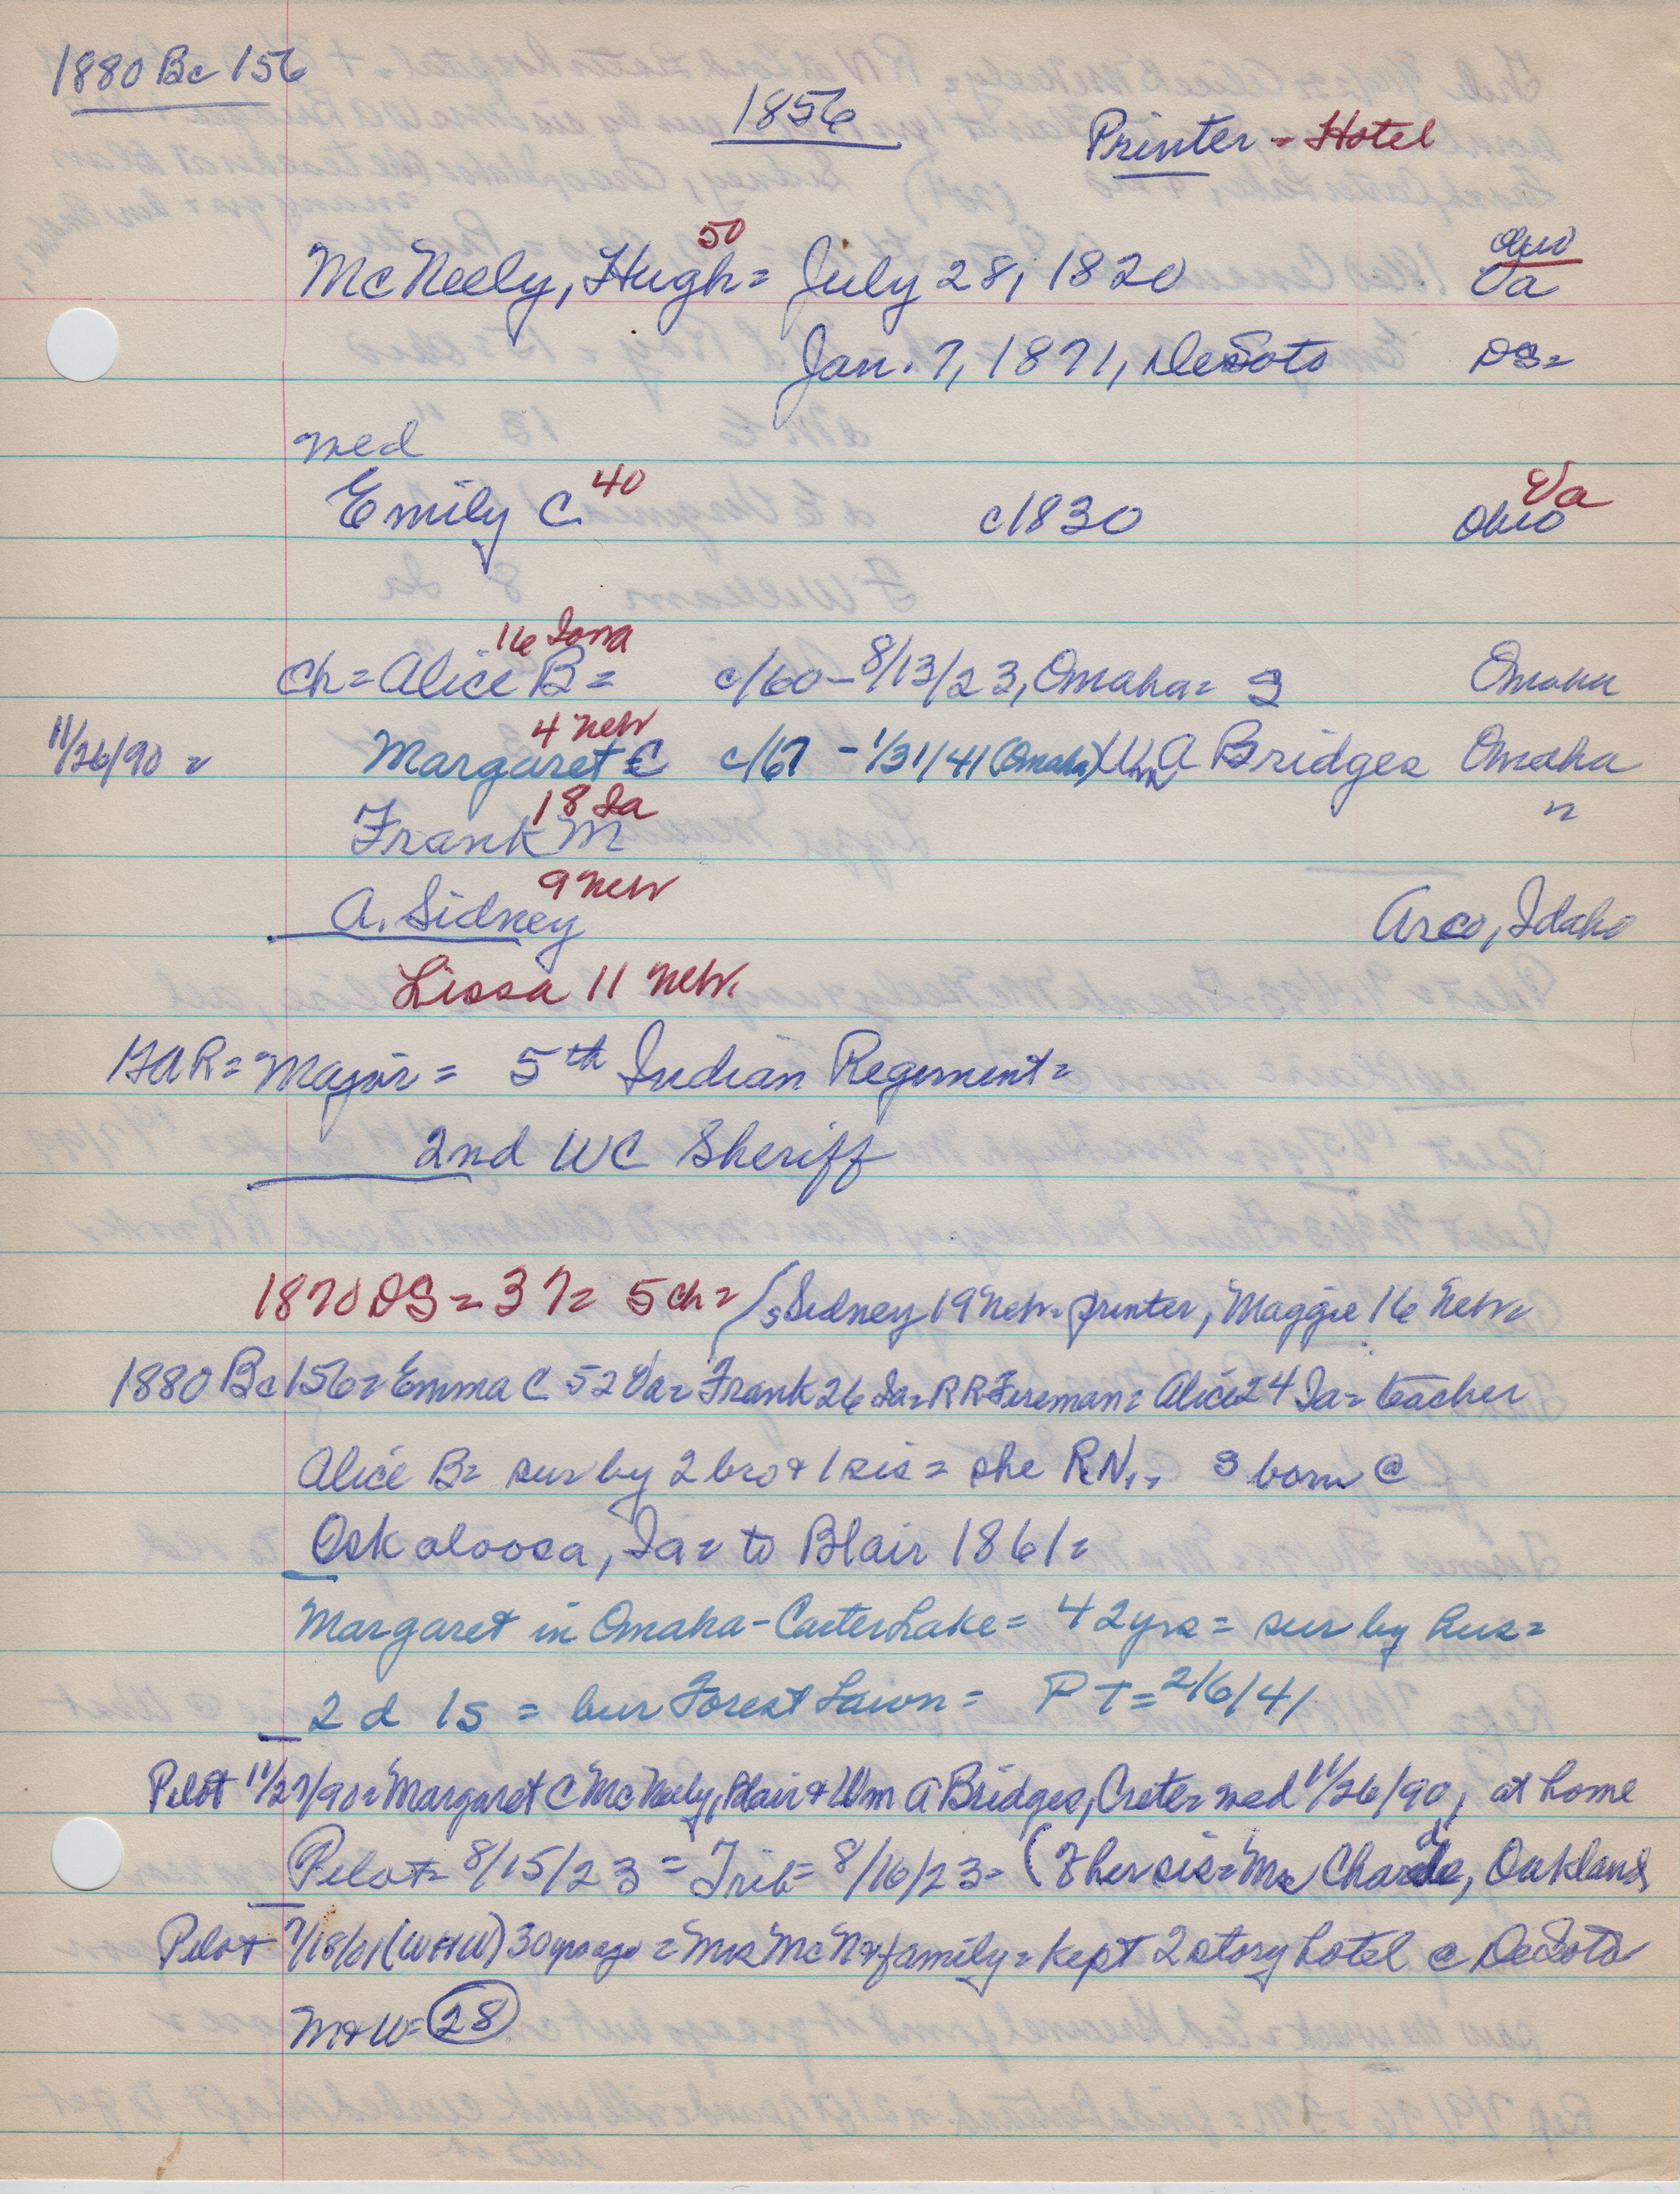 1880 Bc 156
1856
Printer - Hotel
50
Ohio
McNeely, Hugh = July 28, 1820 Va
Jan. 7, 1871, DeSoto DS=
med
40
Va
Emily C. c1830 Ohio
16 Iowa
Ch = Alice B = c/60 - 8/13/23, Omaha = S Omaha
4 Neb
11/26/90 = Margaret C c/67 - 1/31/41 (Omaha) Wm A Bridges Omaha
18 Ia
Frank M "
9 Neb
A. Sidney Arco, Idaho
Lissa 11 Neb.
GAR = Major = 5th Indian Regement =
2nd WC Sheriff
1870 DS = 37 = 5 ch = (Sidney 19 Neb = printer, Maggie 16 Neb =
1880 Bc 156 = Emma C 52 Va = Frank 26 Ia = RR Fireman = Alice 24 Ia = teacher
Alice B = sur by 2 bro + 1 sis = she R.N. = S born @
Oskaloosa, Ia = to Blair 1861 =
Margaret in Omaha - Carter Lake = 42 yrs = sur by hus =
2 d 1 s = bur Forest Lawn = PT = 2/6/41
Pilot 11/27/90 = Margaret C McNeely, Blair + Wm A Bridges, Crete = med 11/26/90, at home
Pilot = 8/15/23 = Trib = 8/16/23 = (F her sis = Mrs Oakland
Pilot 7/18/01 (WHW) 30 yrs ago = Mrs McN & family = kept 2 story hotel @ DeSoto
M+W = 28